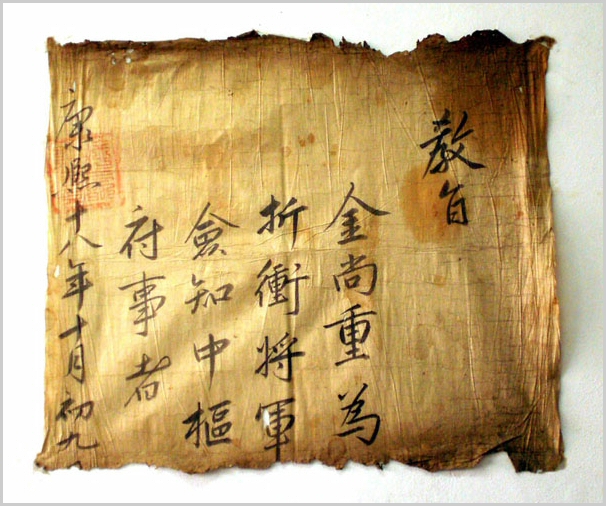 教旨
金尚重為
折衝将軍
僉知中樞
府事者
康熙十八年十月初九